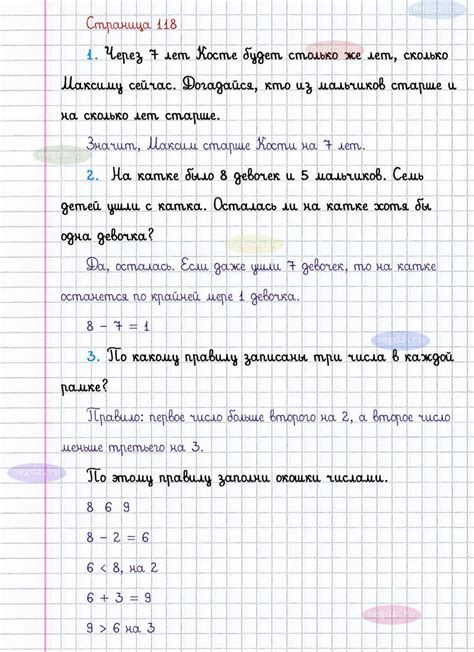 Страница 118
1. Через 7 лет Косте будет столько же лет, сколько
Максиму сейчас. Догадайся, кто из мальчиков старше и
на сколько лет старше.
Значит, Максим старше Кости на 7 лет.
2. На катке было 8 девочек и 5 мальчиков. Семь
детей ушли с катка. Осталась ли на катке хотя бы
одна девочка?
Да, осталась. Если даже ушли 7 девочек, то на катке
останется по крайней мере 1 девочка.
8 - 7 = 1
negdz.ru
3. По какому правилу записаны три числа в каждой
рамке?
Правило: первое число больше второго на 2, а второе число
меньше третьего на 3.
negdz.ru
По этому правилу заполни окошки числами.
8 6 9
8 - 2 = 6
6 < 8, на 2
6 + 3 = 9
negdz.ru
9 > 6 на 3